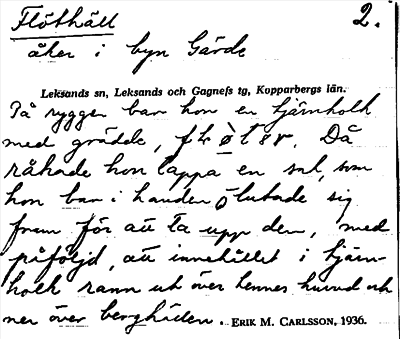 Flöthäll 2.
åker i byn Gärde
Leksands sn, Leksands och Gagnefs tg, Kopparbergs län.
På ryggen bar hon en tjärnholk
med grädde, fl. Då
råkade hon tappa en snl, som
hon bar i handen o lutade sig
fram för att ta upp den, med
påföljd, att innehållet i tjärn-
holk rann ut över hennes huvud och
ner över berghäden. ERIK M. CARLSSON, 1936.